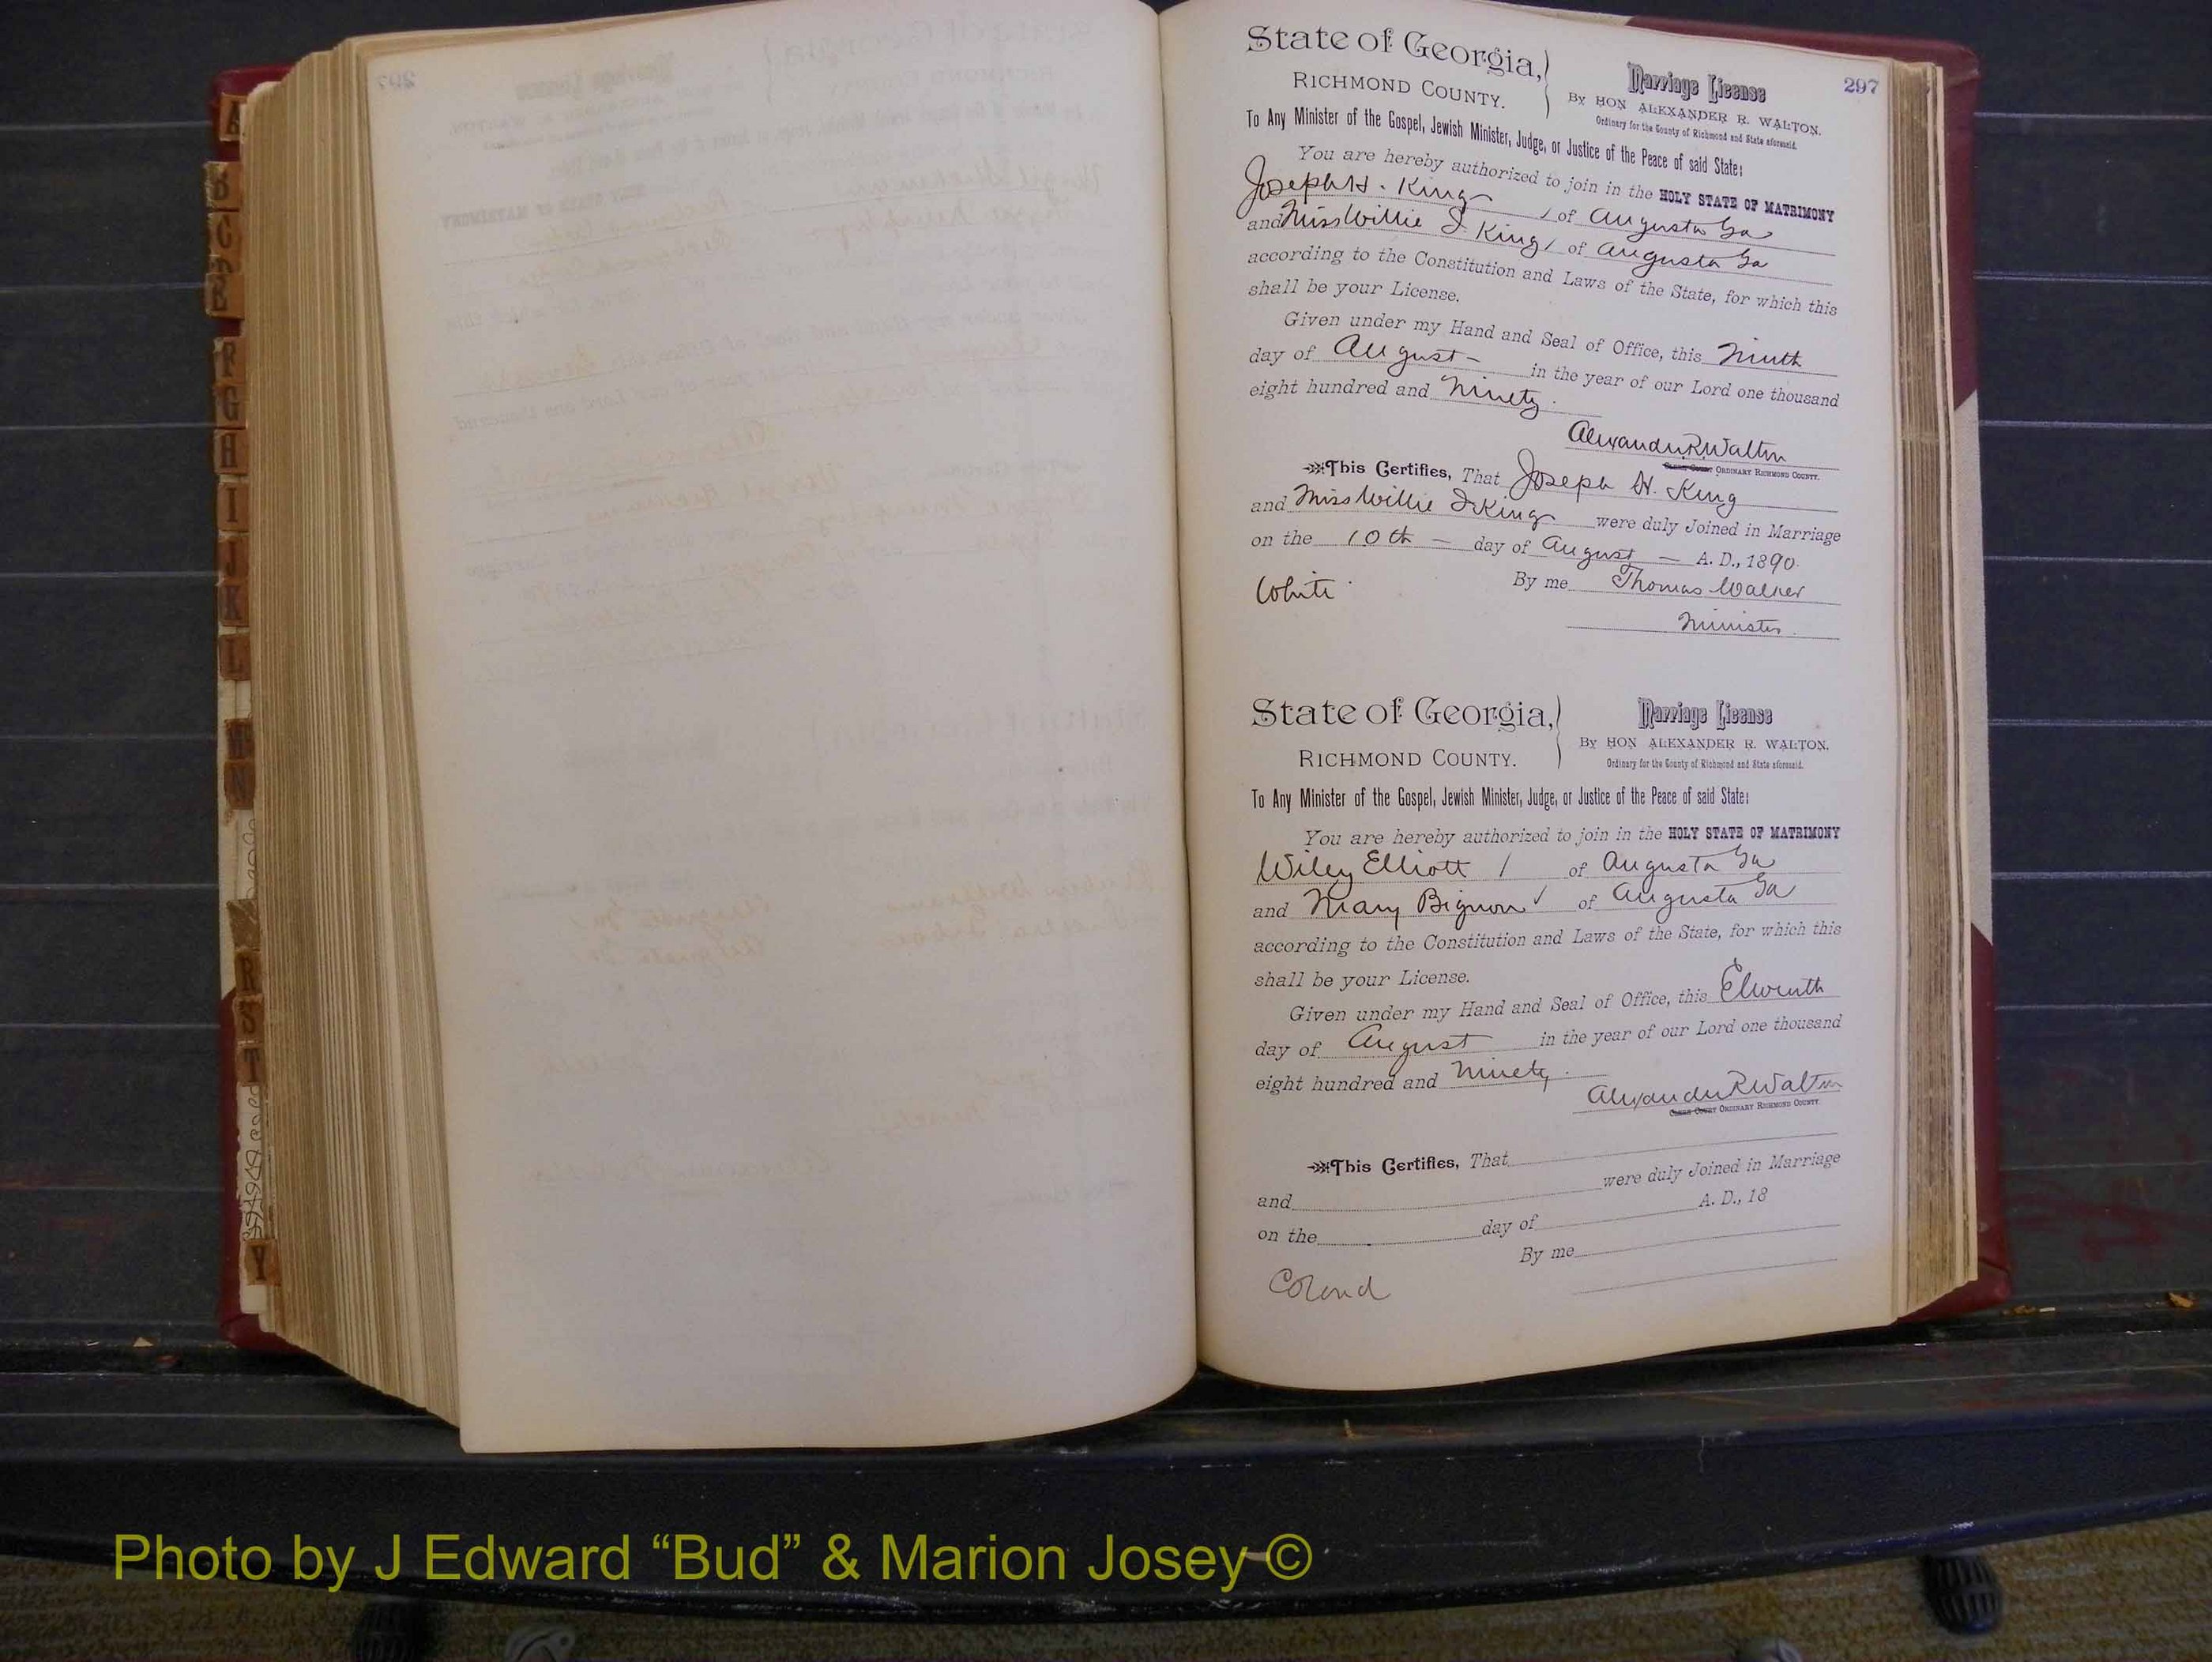 297
State of Georgia,
RICHMOND COUNTY.
Marriage License
By HON ALEXANDER R. WALTON.
Ordinary for the County of Richmond and State aforesaid.
To Any Minister of the Gospel, Jewish Minister, Judge, or Justice of the Peace of said State:
You are hereby authorized to join in the HOLY STATE OF MATRIMONY
Joseph H. King of Augusta Ga
and Miss Willie I. King of Augusta Ga
according to the Constitution and Laws of the State, for which this
shall be your License.
Given under my Hand and Seal of Office, this Ninth
day of August in the year of our Lord one thousand
eight hundred and Ninety.
Alexander R Walton
ORDINARY RICHMOND COUNTY.
This Certifies, That Joseph H. King
and Miss Willie I King were duly Joined in Marriage
on the 10th day of August A. D., 1890.
By me Thomas Walker
White
Minister.
State of Georgia,
RICHMOND COUNTY.
Marriage License
By HON ALEXANDER R. WALTON.
Ordinary for the County of Richmond and State aforesaid.
To Any Minister of the Gospel, Jewish Minister, Judge, or Justice of the Peace of said State:
You are hereby authorized to join in the HOLY STATE OF MATRIMONY
Wiley Elliott of Augusta Ga
and Mary Bignon of Augusta Ga
according to the Constitution and Laws of the State, for which this
shall be your License.
Given under my Hand and Seal of Office, this Eleventh
day of August in the year of our Lord one thousand
eight hundred and Ninety.
Alexander R Walton
CLERK COURT ORDINARY RICHMOND COUNTY.
This Certifies, That
and were duly Joined in Marriage
on the day of A. D., 18
By me
Colored
A
B
C
F
G
H
I
J
K
L
M
N
R
S
T
Y
Photo by J Edward “Bud” & Marion Josey ©